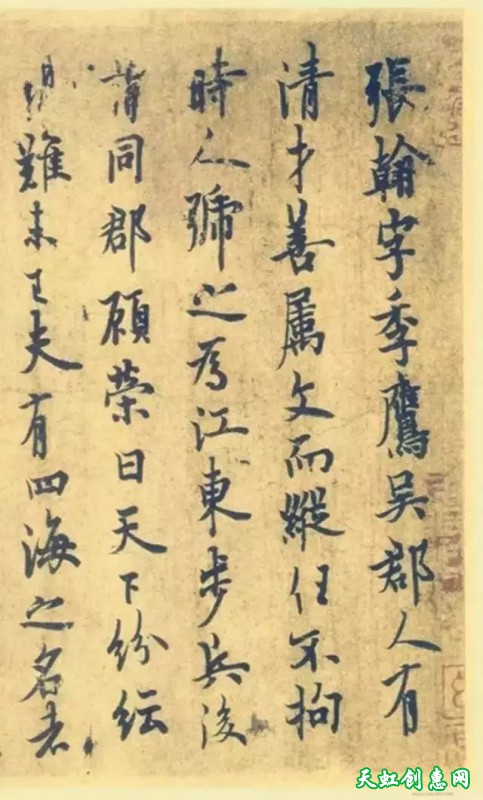 張翰字季鷹吳郡人有
清才善屬文而縱任不拘
時人號之為江東步兵後
同郡顧榮曰天下紛紜
難未夫有四海之名者
天虹创惠网